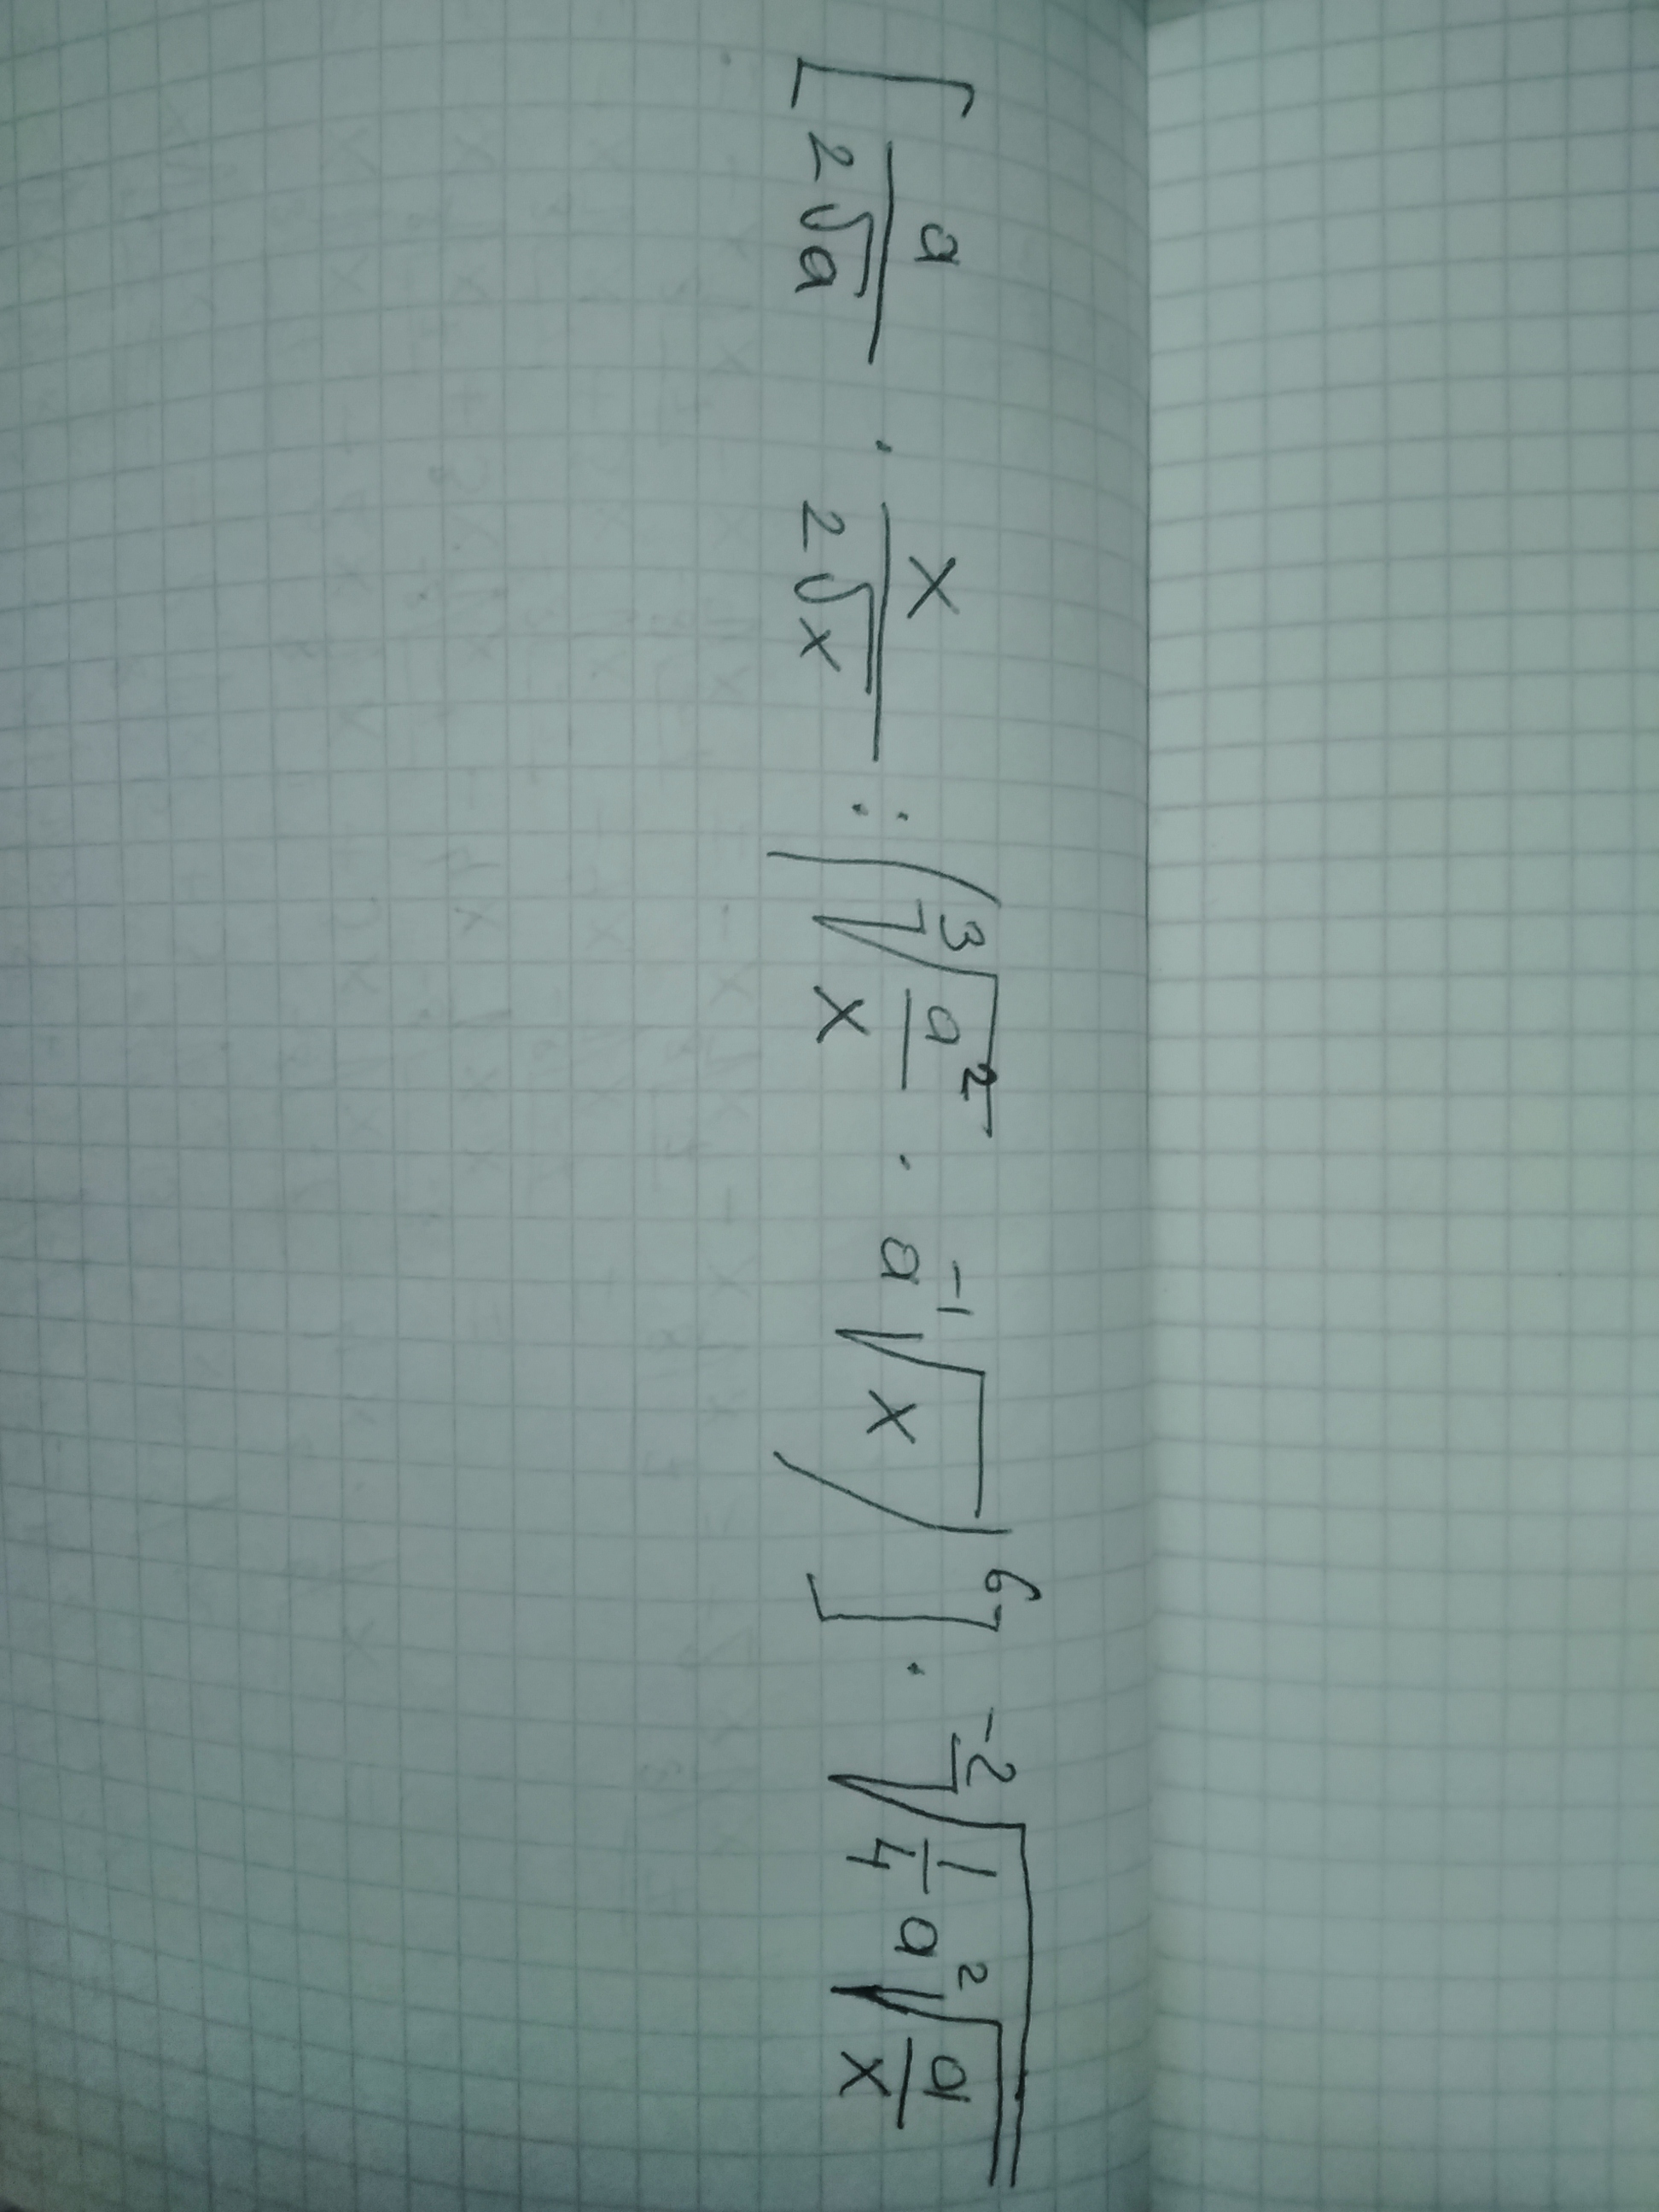 [ a / 2√a · x / 2√x : ( ³√(a² / x) · a⁻¹√x )⁶ ] · ⁻²√( 1/4 a² √(a / x) )